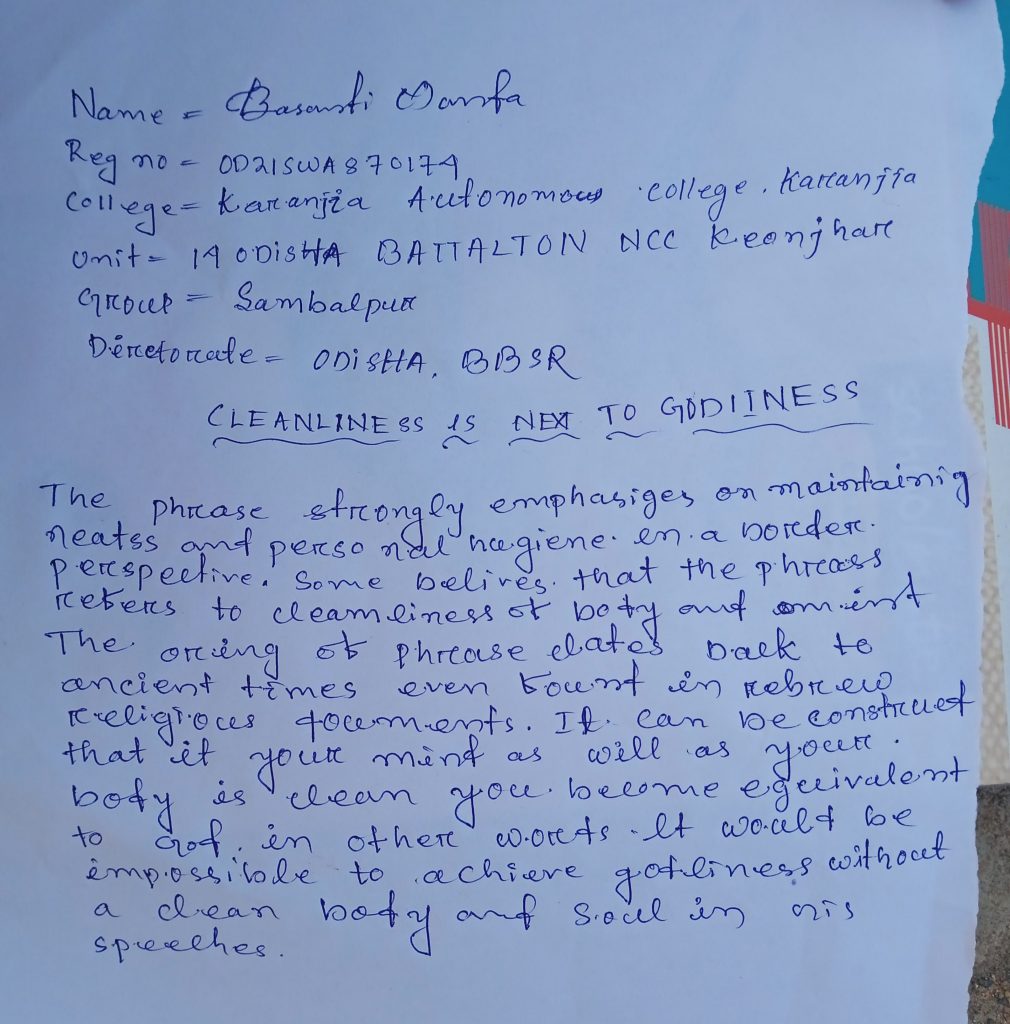 Name = Basanti
Reg no = OD21SWA870174
College = Karanjia Autonomous college. Karanjia
Unit = 14 ODisHA BATTALTON NCC Keonjhar
Group = Sambalpur
Directorate = ODiSHA, BBSR
CLEANLINESS IS NEXT TO GODIINESS
The phrase strongly emphasiges on maintainig
neatss and personal hugiene. in a border.
perspective. Some belives. that the phrass
refers to cleamliness of body and
The oring of phrase dates back to
ancient times even found in hebrew
religious documents. It. can be construct
that if your mind as will as your.
body is clean you. become equivalent
to God. in other words. It would be
impossible to achieve godliness without
a clean body and soul in his
speeches.